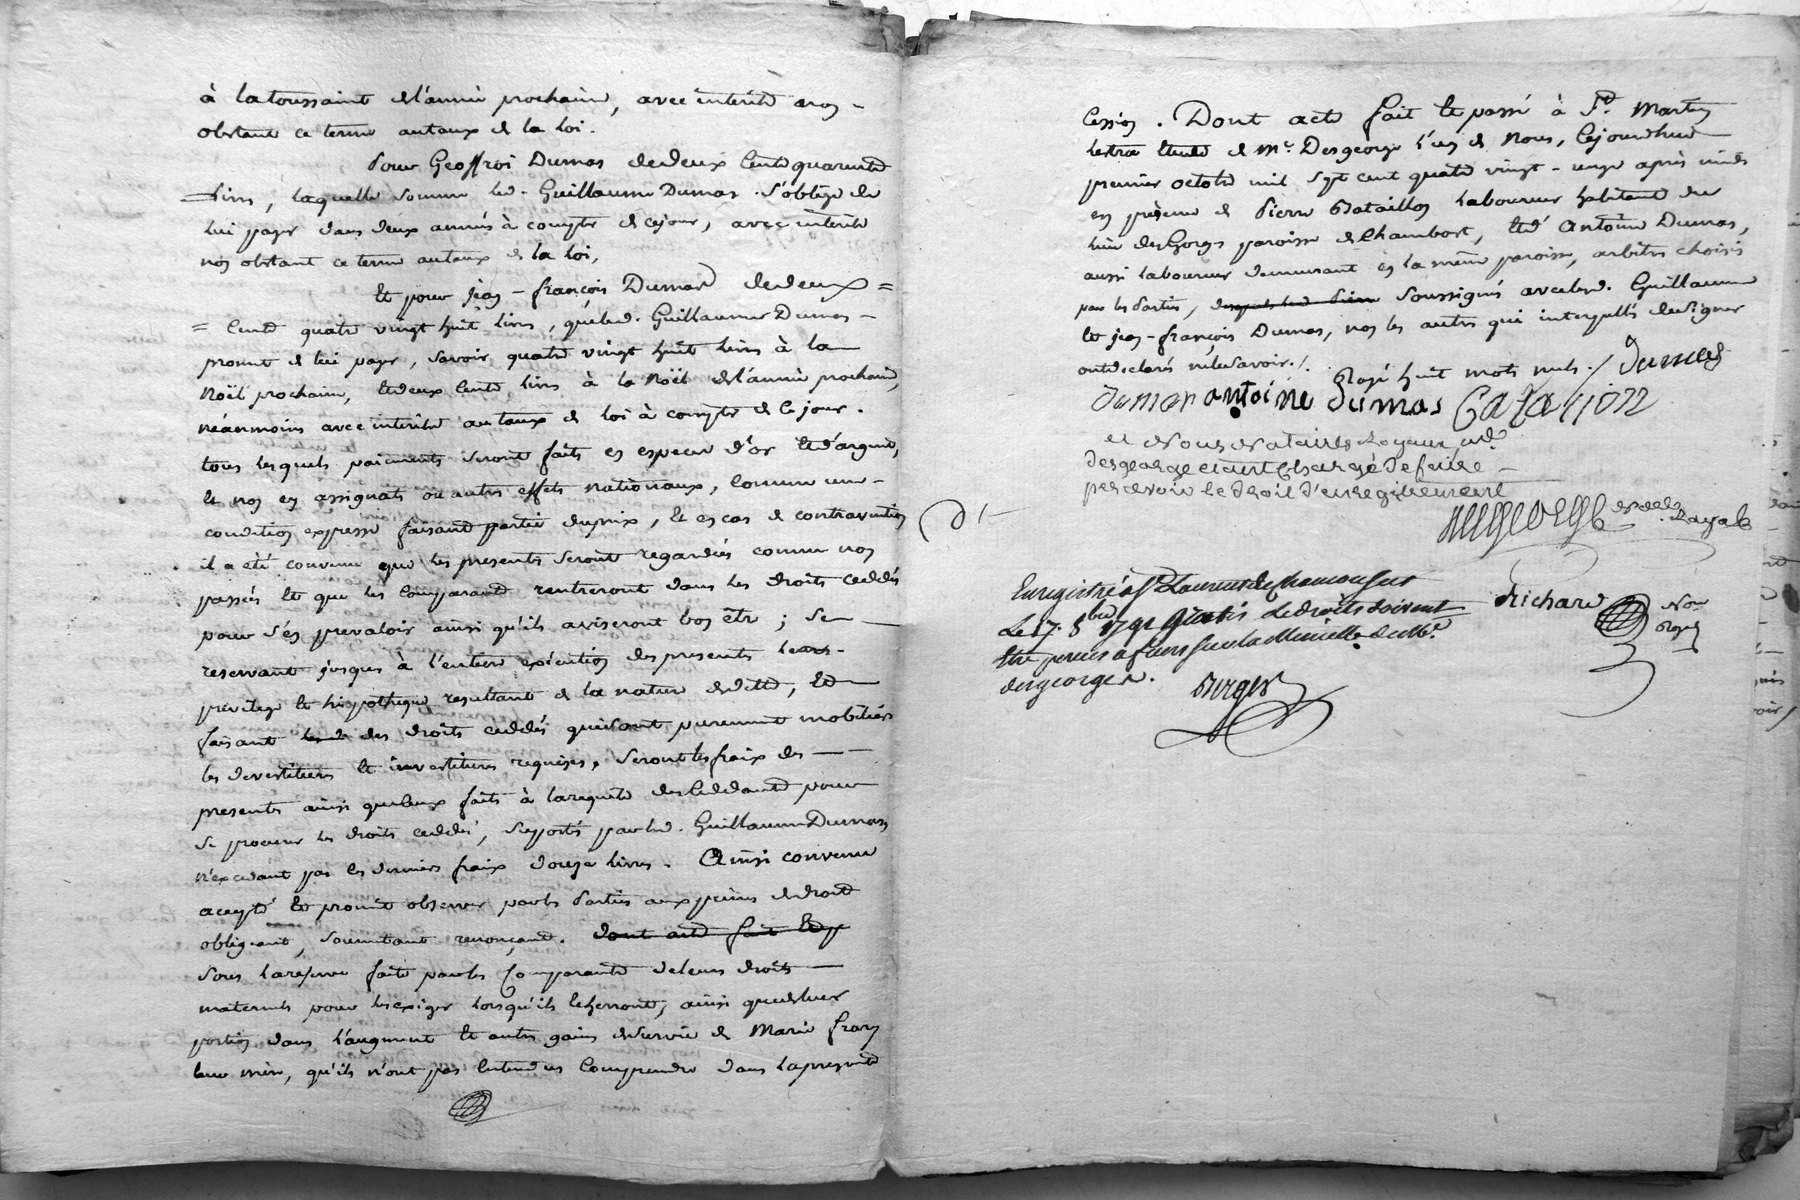 à la toussaint de l'année prochaine, avec intérêts non -
obstant ce terme au taux de la loi.
Pour Geoffroi Dumas de deux cents quarante
livres, laquelle somme led. Guillaume Dumas s'oblige de
lui payer dans deux années à compter de ce jour, avec intérêts
non obstant ce terme au taux de la loi,
Et pour jean - françois Dumas de deux =
= Cents quatre vingt huit livres, que led. Guillaume Dumas -
promet de lui payer, savoir quatre vingt huit livres à la
Noël prochaine, et deux cents livres à la Noël de l'année prochaine,
néanmoins avec intérêts au taux de loi à compter de ce jour.
tous lesquels paiements seront faits en especes d'or et d'argent,
et non en assignats ou autres effets nationaux, comme une -
condition expresse faisant partie du prix, et en cas de contravention
il a été convenu que les presentes seront regardées comme non
passées et que les Comparants rentreront dans les droits cedés
pour s'en prevaloir ainsi qu'ils aviseront bon être ; se -
reservant jusques à l'entiere exécution des presentes leurs -
privilege et hipotheque resultant de la nature de dette, et
faisant des droits cedés qui sont purement mobiliers
les devestitures et investitures requises, seront les fraix des -
presentes ainsi que ceux faits à la requête des cedants pour
se procurer les droits cedés, suportés par led. Guillaume Dumas
n'excedant pas les derniers fraix douze livres. Ainsi convenu
accepté et promis observer par les Parties aux peines de droit
obligeant, soumettant renonçant. dont acte fait et p
sous la reserve faite par les Comparants de leurs droits -
maternels pour les exiger lorsqu'ils echerront, ainsi que de leur
portion dans l'augment et autres gains de survie de Marie
leur mère, qu'ils n'ont pas entendus Comprendre dans la presente
Cession. Dont acte fait et passé à St. Martin
lestra etude de Me. Desgeorge l'un de Nous, Cejourdhui
premier octobre mil sept cent quatre vingt - onze après midi
en présence de Pierre Bataillon laboureur habitant du
lieu des Gorgs paroisse de Chambost, et d'Antoine Dumas,
aussi laboureur demeurant en la même paroisse, arbitres choisis
par les Parties, soussignés avec led. Guillaume
et jean - françois Dumas, non les autres qui interpellés de signer
ont declarés ne le savoir ./. Rayé huit mots nuls ./ Dumas
Dumas antoine dumas Bataillon
et Nous Notaires Royaux, led.
desgeorge etant Chargé de faire -
percevoir le droit d'enregistrement
desgeorge Notre. Royal
Enregistré à St Laurent de Chamousset
Le 17. 8bre 1791 Gratis Le droits doivent
être perçus à fieurs sur la Minutte de Me.
desgeorge n.
Berger
Richard Nore
Royal